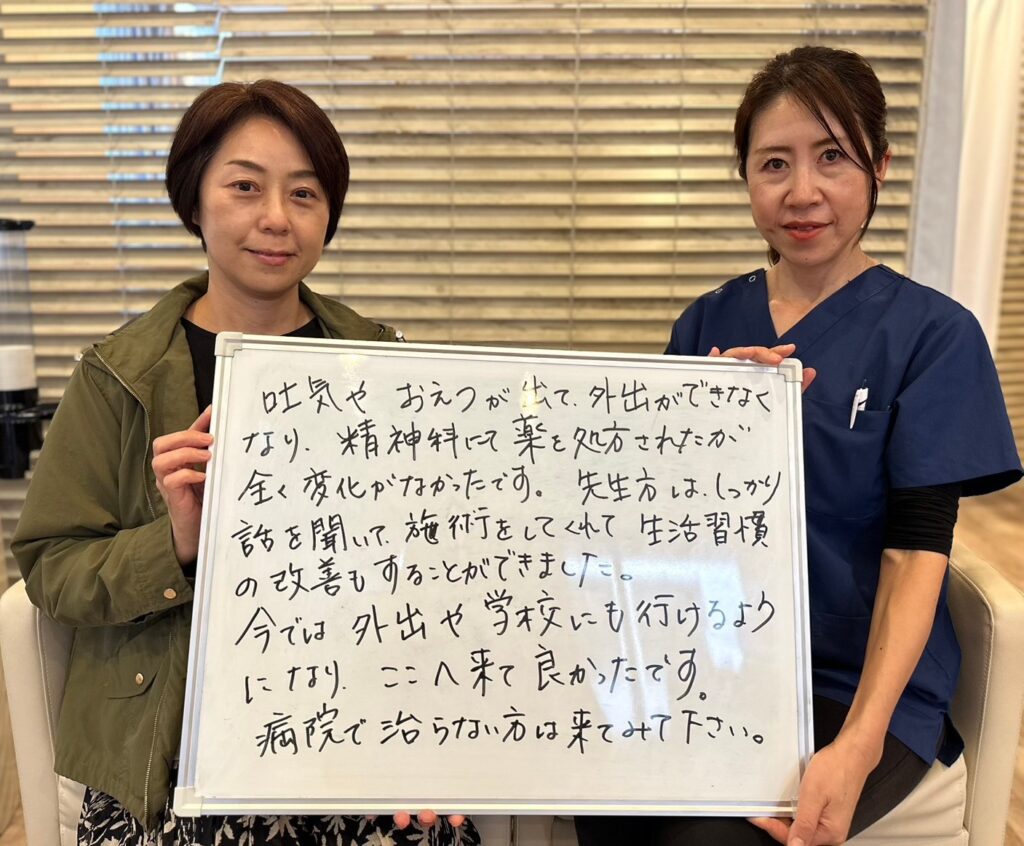 吐気や おえつが出て、外出ができなく
なり、精神科にて薬を処方されたが
全く変化がなかったです。先生方は、しっかり
話を聞いて、施術をしてくれて 生活習慣
の改善もすることができました。
今では 外出や学校にも行けるよう
になり、ここへ来て良かったです。
病院で治らない方は来てみて下さい。